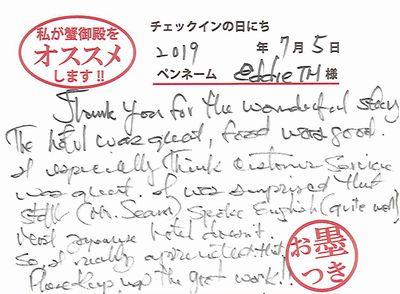 私が蟹御殿を
オススメ
します!!
チェックインの日にち
2019 年 7 月 5 日
ペンネーム eddie TH 様
Thank you for the wonderful stay
The hotel was great, food was good.
I especially think customer service
was great. I was surprised that
staff (Mr. Sean) speaks English (quite well)
Most Japanese hotel doesn't.
So, I really appreciated that.
Please keep up the great work!!
お墨
つき